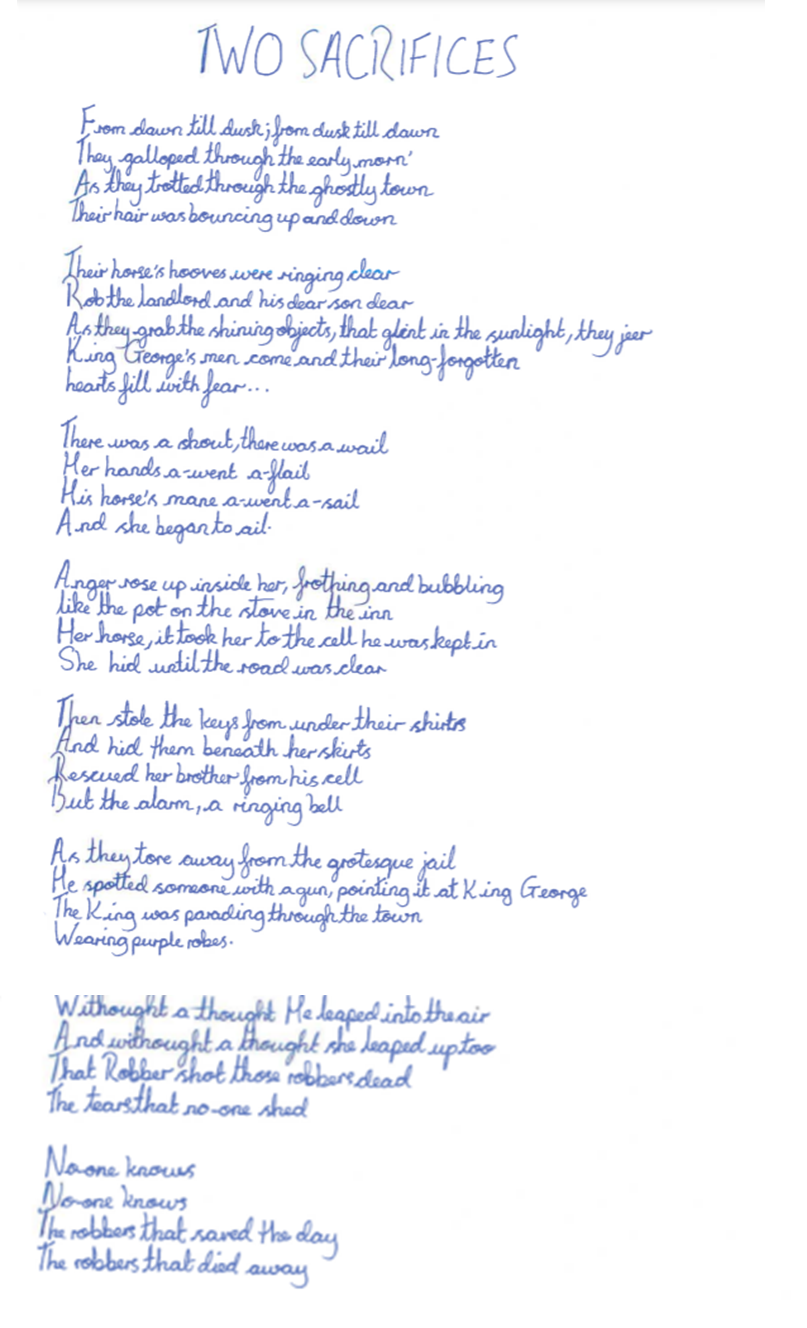 TWO SACRIFICES
From dawn till dusk; from dusk till dawn
They galloped through the early morn'
As they trotted through the ghostly town
Their hair was bouncing up and down
Their horse's hooves were ringing clear
Rob the landlord and his dear son dear
As they grab the shining objects, that glint in the sunlight, they jeer
King George's men come and their long-forgotten
hearts fill with fear...
There was a shout, there was a wail
Her hands a-went a-flail
His horse's mane a-went a-sail
And she began to ail.
Anger rose up inside her, frothing and bubbling
like the pot on the stove in the inn
Her horse, it took her to the cell he was kept in
She hid until the road was clear
Then stole the keys from under their shirts
And hid them beneath her skirts
Rescued her brother from his cell
But the alarm, a ringing bell
As they tore away from the grotesque jail
He spotted someone with a gun, pointing it at King George
The King was parading through the town
Wearing purple robes.
Withought a thought He leaped into the air
And withought a thought she leaped up too
That Robber shot those robbers dead
The tears that no-one shed
No-one knows
No-one knows
The robbers that saved the day
The robbers that died away